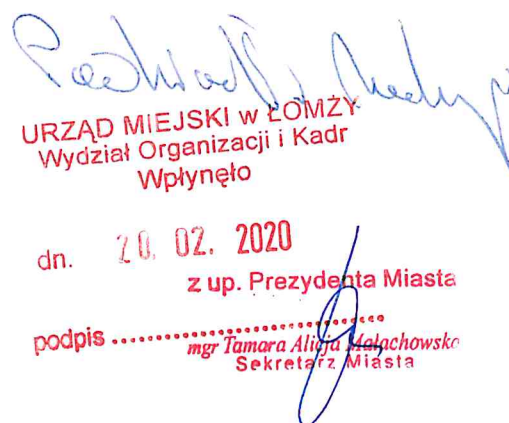 URZĄD MIEJSKI w ŁOMŻY
Wydział Organizacji i Kadr
Wpłynęło
dn. 20. 02. 2020
z up. Prezydenta Miasta
podpis
mgr Tamara Alicja Małachowska
Sekretarz Miasta